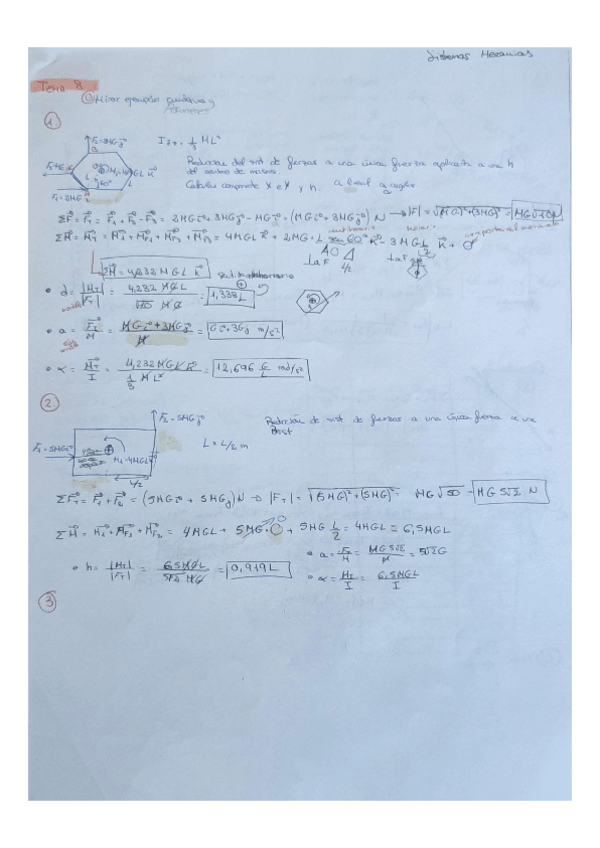 Sistemas Mecánicos
Tema 8
Mirar ejemplos
1.
I = 1/3 ML²
F₂=3MG j
Reducción del sist de fuerzas a una única fuerza aplicada a una h
del centro de masas.
Calcular componente X e Y y h.
ΣF = F_T = F₁ + F₂ - F₃ = 2MG i + 3MG j - MG i = (MG i + 3MG j) N → |F| = √(MG)²+(3MG)² = MG√10 N
ΣM = M_T = M₁ + M_F1 + M_F2 + M_F3 = 4MGL K + 2MG · L sen 60° K - 3MG L/2 K + 0
L/2
ΣM = 4,232 MGL K
• d = |M_T|/|F_T| = 4,232 MGL / √10 MG = 1,338L
• a = F_T/M = MG i + 3MG j / M = G i + 3G j m/s²
• α = M_T/I = 4,232 MGL K / 1/3 ML² = 12,696 G/L rad/s²
2.
F₂ = 5MG j
Reducción de sist de fuerzas a una única fuerza a una
dist
F₁ = 5MG i
M₁=4MGL K
L/2
ΣF_T = F₁ + F₂ = (5MG i + 5MG j) N → |F_T| = √(5MG)²+(5MG)² = MG√50 = MG 5√2 N
ΣM = M₁ + M_F1 + M_F2 = 4MGL + 5MG · 0 + 5MG L/2 = 4MGL = 6,5MGL
• a = F_T/M = MG5√2/M = 5√2G
• h = |M_T|/|F_T| = 6,5MGL / 5√2 MG = 0,919L
• α = M_T/I = 6,5MGL/I
3